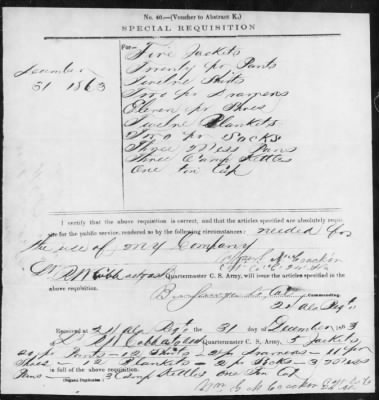 No. 40.—(Voucher to Abstract K.)
SPECIAL REQUISITION
For—
Five Jackets
December
Twenty pr Pants
31 1863
Twelve Shirts
Two pr Drawers
Eleven pr Shoes
Twelve Blankets
Two pr Socks
Three Mess Pans
Three Camp Kettles
One Tin Cup
I certify that the above requisition is correct, and that the articles specified are absolutely requisite
for the public service, rendered so by the following circumstances: needed for
the use of my Company
Quartermaster C. S. Army, will issue the articles specified in the
above requisition.
Commanding.
Received at the 31 day of December 3
of Quartermaster C. S. Army, 5 Jackets
Pants - 12 Shirts - 2 pr Drawers - 11 pr
Shoes - 12 Blankets - 2 pr Socks - 3 Mess
Pans - 3 Camp Kettles One Tin Cup
in full of the above requisition.
(Signed Duplicates)